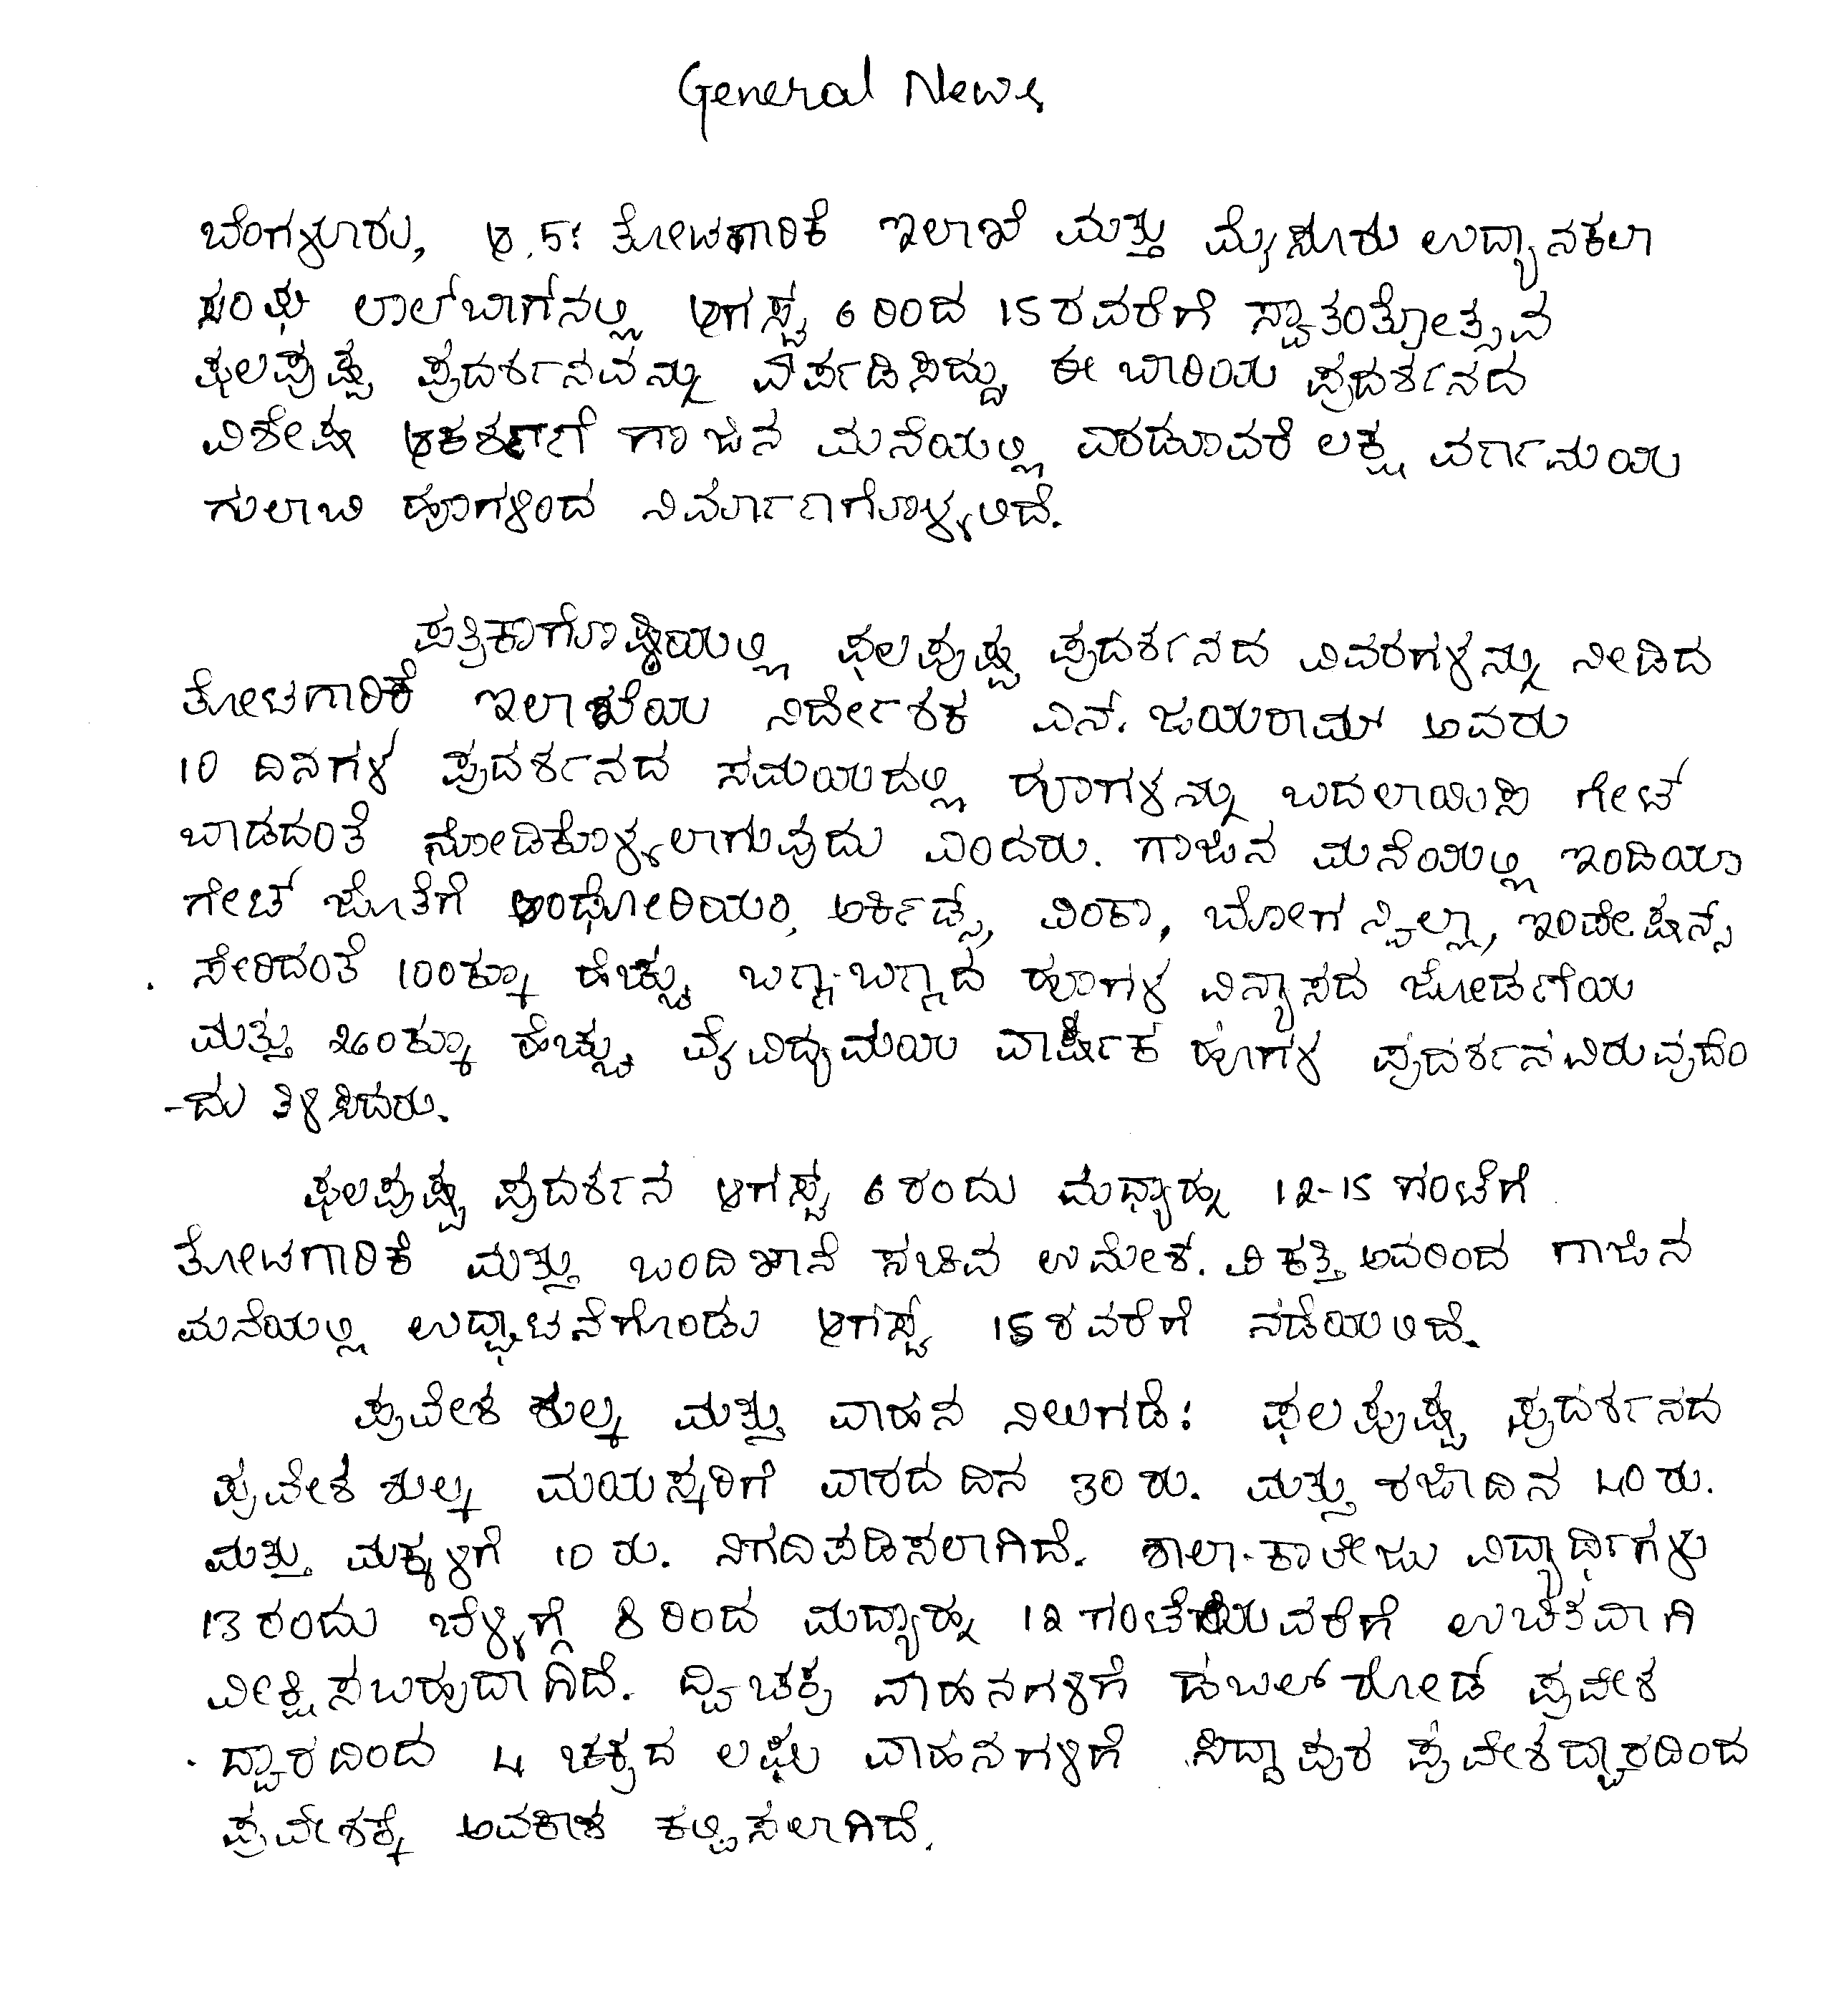 General News
ಬೆಂಗಳೂರು, ಆ.5: ತೋಟಗಾರಿಕೆ ಇಲಾಖೆ ಮತ್ತು ಮೈಸೂರು ಉದ್ಯಾನಕಲಾ
ಸಂಘ ಲಾಲ್‌ಬಾಗ್‌ನಲ್ಲಿ ಆಗಸ್ಟ್ 6 ರಿಂದ 15 ರವರೆಗೆ ಸ್ವಾತಂತ್ರೋತ್ಸವ
ಫಲಪುಷ್ಪ ಪ್ರದರ್ಶನವನ್ನು ಏರ್ಪಡಿಸಿದ್ದು, ಈ ಬಾರಿಯ ಪ್ರದರ್ಶನದ
ವಿಶೇಷ ಗಾಜಿನ ಮನೆಯಲ್ಲಿ ಎರಡೂವರೆ ಲಕ್ಷ ವರ್ಗಮಯ
ಗುಲಾಬಿ ಹೂಗಳಿಂದ ನಿರ್ಮಾಣಗೊಳ್ಳಲಿದೆ.
ಪತ್ರಿಕಾಗೊಷ್ಠಿಯಲ್ಲಿ ಫಲಪುಷ್ಪ ಪ್ರದರ್ಶನದ ವಿವರಗಳನ್ನು ನೀಡಿದ
ತೋಟಗಾರಿಕೆ ಇಲಾಖೆಯ ನಿರ್ದೇಶಕ ಎನ್. ಜಯರಾಮ್ ಅವರು
10 ದಿನಗಳ ಪ್ರದರ್ಶನದ ಸಮಯದಲ್ಲಿ ಹೂಗಳನ್ನು ಬದಲಾಯಿಸಿ ಗೇಟ್
ಬಾಡದಂತೆ ನೋಡಿಕೊಳ್ಳಲಾಗುವುದು ಎಂದರು. ಗಾಜಿನ ಮನೆಯಲ್ಲಿ ಇಂಡಿಯಾ
ಗೇಟ್ ಜೊತೆಗೆ ಆಂಥೋರಿಯಂ, ಅರ್ಕಿಡ್ಸ್, ವಿಂಕಾ, ಬೋಗನ್ವಿಲ್ಲಾ, ಇಂಪೇಷನ್ಸ್
ಸೇರಿದಂತೆ 100ಕ್ಕೂ ಹೆಚ್ಚು ಬಗ್ಗ-ಬಗ್ಗದ ಹೂಗಳ ವಿನ್ಯಾಸದ ಜೋಡಣೆಯ
ಮತ್ತು 260ಕ್ಕೂ ಹೆಚ್ಚು ವೈವಿದ್ಯಮಯ ವಾರ್ಷಿಕ ಹೂಗಳ ಪ್ರದರ್ಶನವಿರುವುದೆಂ
-ದು ತಿಳಿಸಿದರು.
ಫಲಪುಷ್ಪ ಪ್ರದರ್ಶನ ಆಗಸ್ಟ್ 6 ರಂದು ಮಧ್ಯಾಹ್ನ 12-15 ಗಂಟೆಗೆ
ತೋಟಗಾರಿಕೆ ಮತ್ತು ಬಂದಿಖಾನೆ ಸಚಿವ ಉಮೇಶ. ಕತ್ತಿ ಅವರಿಂದ ಗಾಜಿನ
ಮನೆಯಲ್ಲಿ ಉದ್ಘಾಟನೆಗೊಂಡು ಆಗಸ್ಟ್ 15 ರವರೆಗೆ ನಡೆಯಲಿದೆ.
ಪ್ರವೇಶ ಶುಲ್ಕ ಮತ್ತು ವಾಹನ ನಿಲುಗಡೆ: ಫಲಪುಷ್ಪ ಪ್ರದರ್ಶನದ
ಪ್ರವೇಶ ಶುಲ್ಕ ಮಯಸ್ಕರಿಗೆ ವಾರದ ದಿನ 30 ರು. ಮತ್ತು ರಜಾದಿನ 40 ರು.
ಮತ್ತು ಮಕ್ಕಳಿಗೆ 10 ರು. ನಿಗದಿಪಡಿಸಲಾಗಿದೆ. ಶಾಲಾ-ಕಾಲೇಜು ವಿದ್ಯಾರ್ಥಿಗಳು
13 ರಂದು ಬೆಳ್ಳಿಗ್ಗೆ 8 ರಿಂದ ಮದ್ಯಾಹ್ನ 12 ಗಂಟೆಯವರೆಗೆ ಉಚಿತವಾಗಿ
ವೀಕ್ಷಿಸಬಹುದಾಗಿದೆ. ದ್ವಿಚಕ್ರ ವಾಹನಗಳಿಗೆ ಡಬಲ್ ರೋಡ್ ಪ್ರವೇಶ
ದ್ವಾರದಿಂದ 4 ಚಕ್ರದ ಲಘು ವಾಹನಗಳಿಗೆ ಸಿದ್ದಾಪುರ ಪ್ರವೇಶದ್ವಾರದಿಂದ
ಪ್ರವೇಶಕ್ಕೆ ಅವಕಾಶ ಕಲ್ಪಿಸಲಾಗಿದೆ.